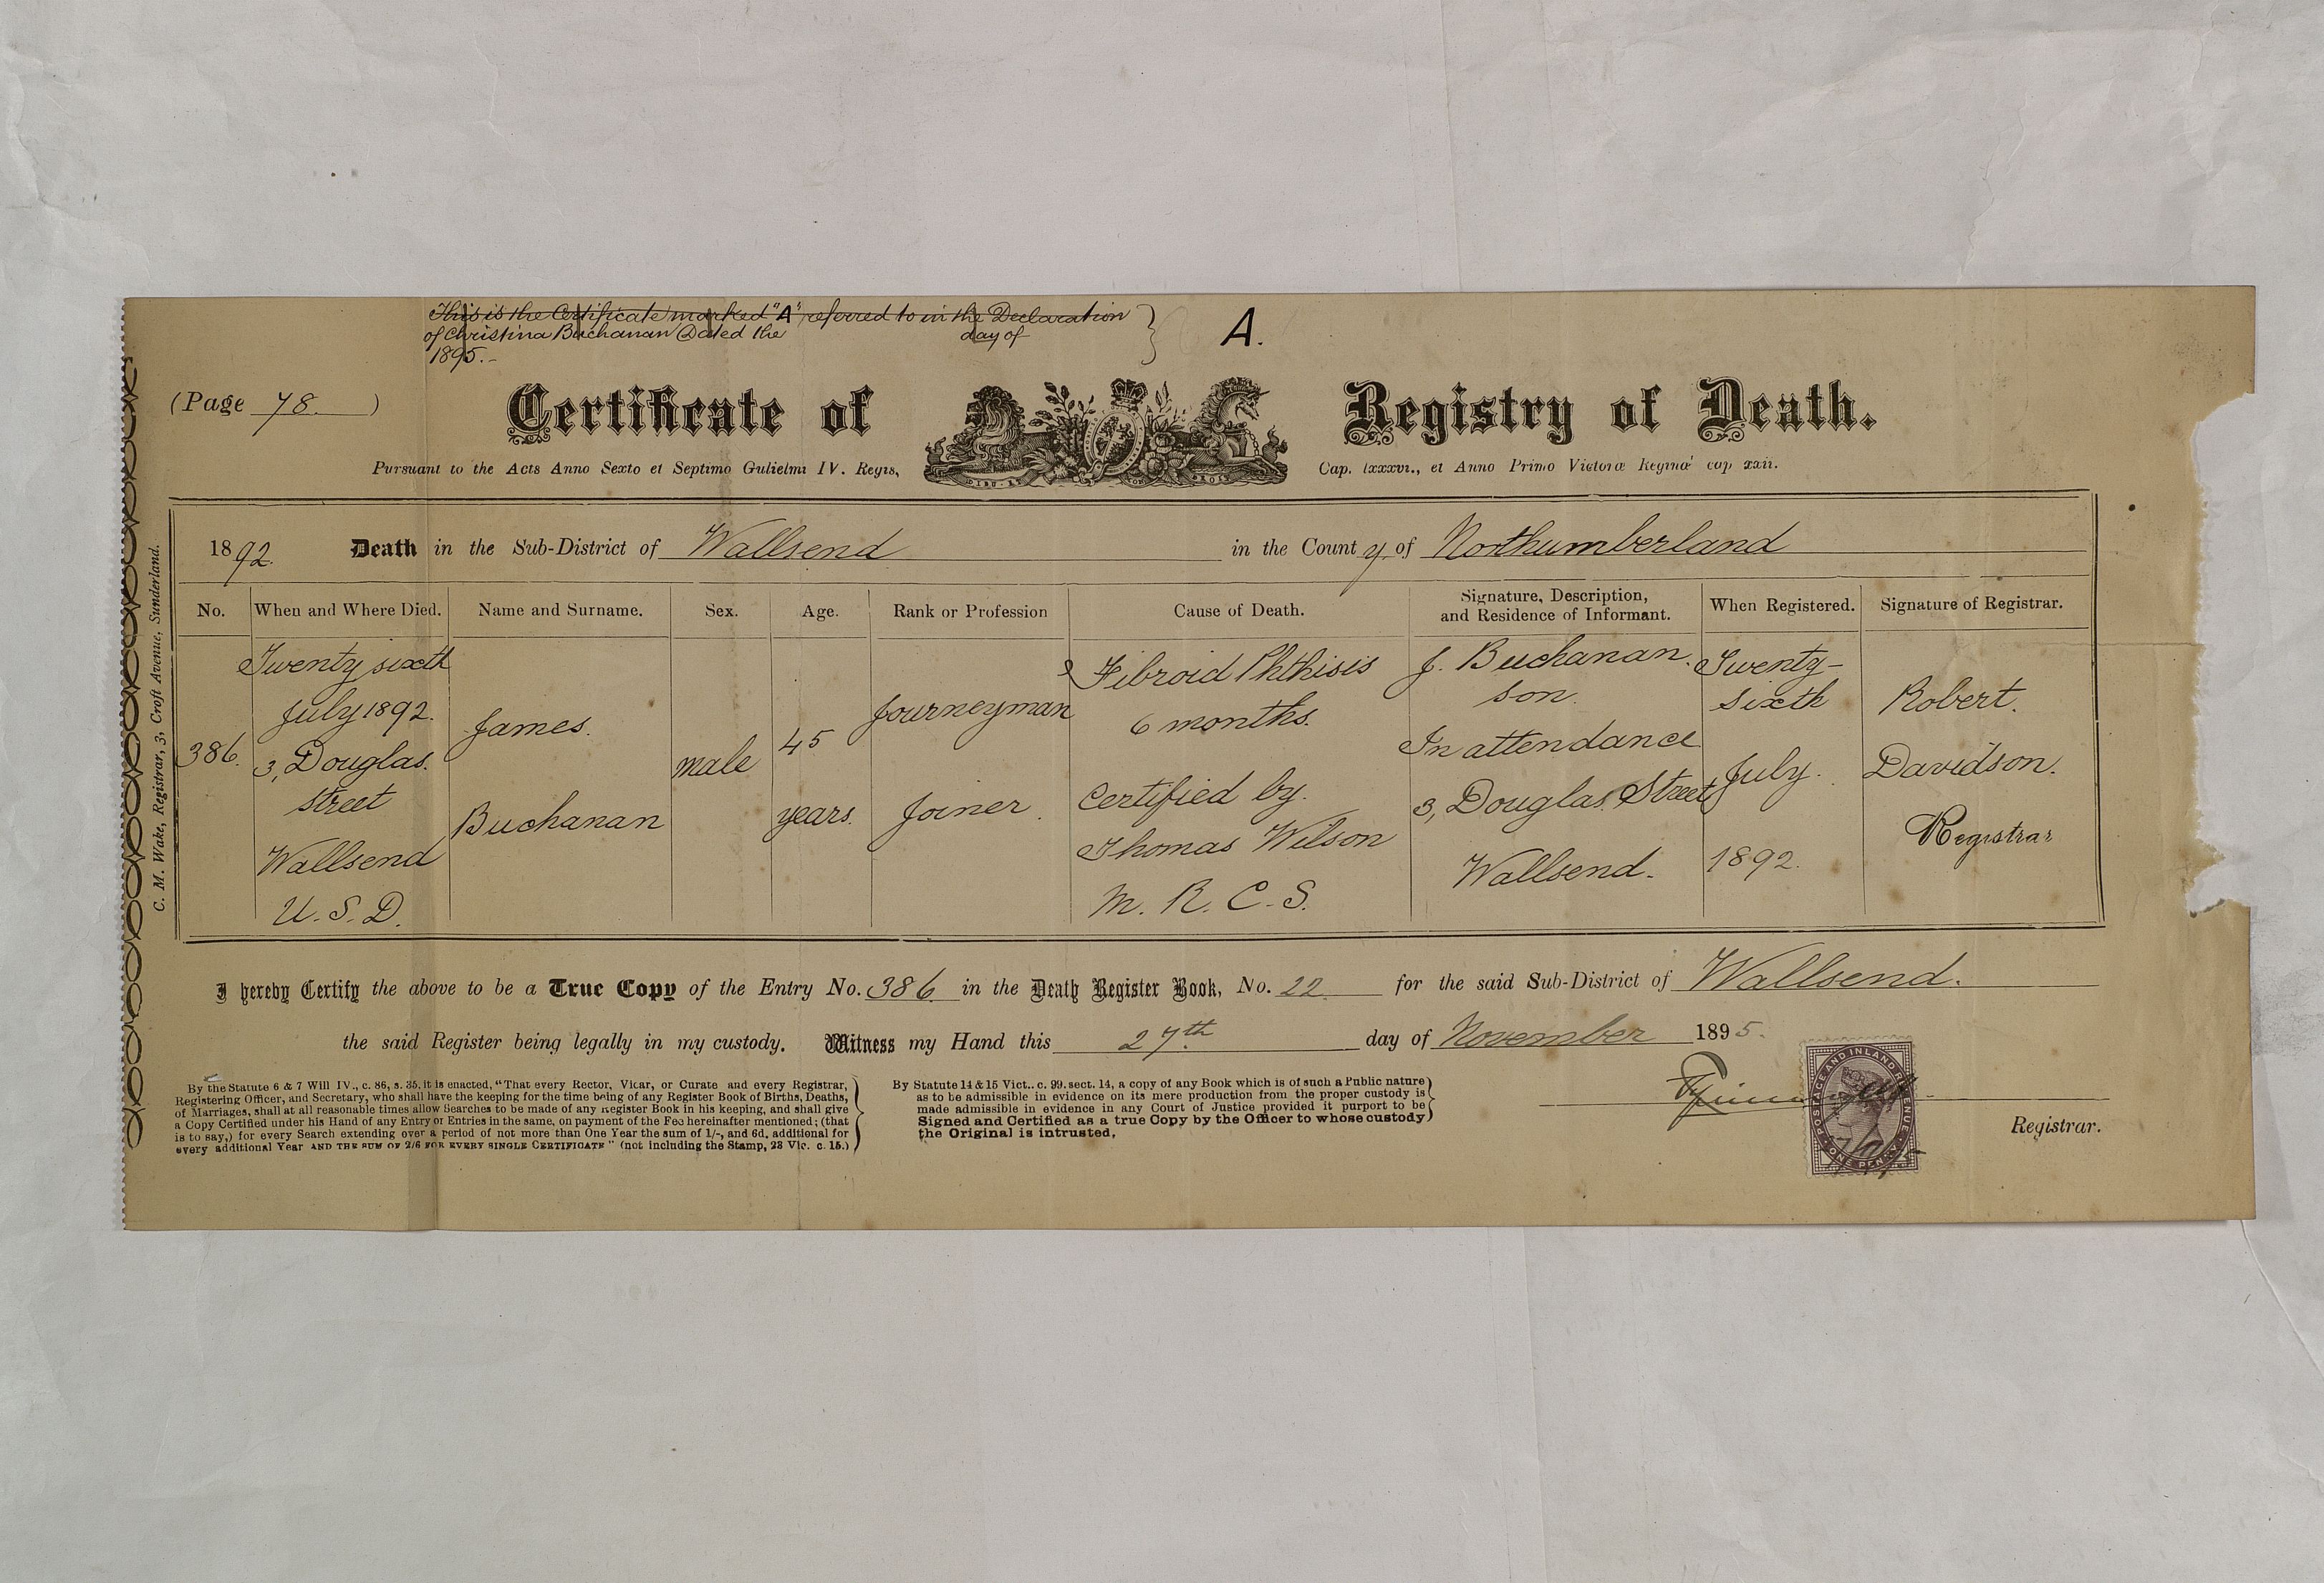 This is the Certificate marked "A" referred to in the Declaration
of Christina Buchanan Dated the day of
1895.-
A.
(Page 78.)
Certificate of Registry of Death.
Pursuant to the Acts Anno Sexto et Septimo Gulielmi IV. Regis, Cap. lxxxvi., et Anno Primo Victoræ Reginæ cap xxii.
DIEU ET MON DROIT
C. M. Wake, Registrar, 3, Croft Avenue, Sunderland.
1892. Death in the Sub-District of Wallsend in the County of Northumberland
No.
When and Where Died.
Name and Surname.
Sex.
Age.
Rank or Profession
Cause of Death.
Signature, Description,
and Residence of Informant.
When Registered.
Signature of Registrar.
386.
Twenty sixth
July 1892.
3, Douglas.
street
Wallsend
U. S. D.
James.
Buchanan
male
45
years.
Journeyman
Joiner.
Fibroid Phthisis
6 months.
Certified by.
Thomas Wilson
M. R. C. S.
J. Buchanan.
son.
In attendance
3, Douglas Street
Wallsend.
Twenty-
sixth
July.
1892.
Robert.
Davidson.
Registrar
I hereby Certify the above to be a True Copy of the Entry No. 386 in the Death Register Book, No. 22 for the said Sub-District of Wallsend.
the said Register being legally in my custody. Witness my Hand this 27th day of November 1895.
By the Statute 6 & 7 Will IV., c. 86, s. 35, it is enacted, "That every Rector, Vicar, or Curate and every Registrar,
Registering Officer, and Secretary, who shall have the keeping for the time being of any Register Book of Births, Deaths,
of Marriages, shall at all reasonable times allow Searches to be made of any register Book in his keeping, and shall give
a Copy Certified under his Hand of any Entry or Entries in the same, on payment of the Fee hereinafter mentioned; (that
is to say,) for every Search extending over a period of not more than One Year the sum of 1/-, and 6d. additional for
every additional Year AND THE SUM OF 2/6 FOR EVERY SINGLE CERTIFICATE" (not including the Stamp, 23 Vic. c. 15.)
By Statute 14 & 15 Vict.. c. 99. sect. 14, a copy of any Book which is of such a Public nature
as to be admissible in evidence on its mere production from the proper custody is
made admissible in evidence in any Court of Justice provided it purport to be
Signed and Certified as a true Copy by the Officer to whose custody
the Original is intrusted.
POSTAGE AND INLAND REVENUE
ONE PENNY
Registrar.